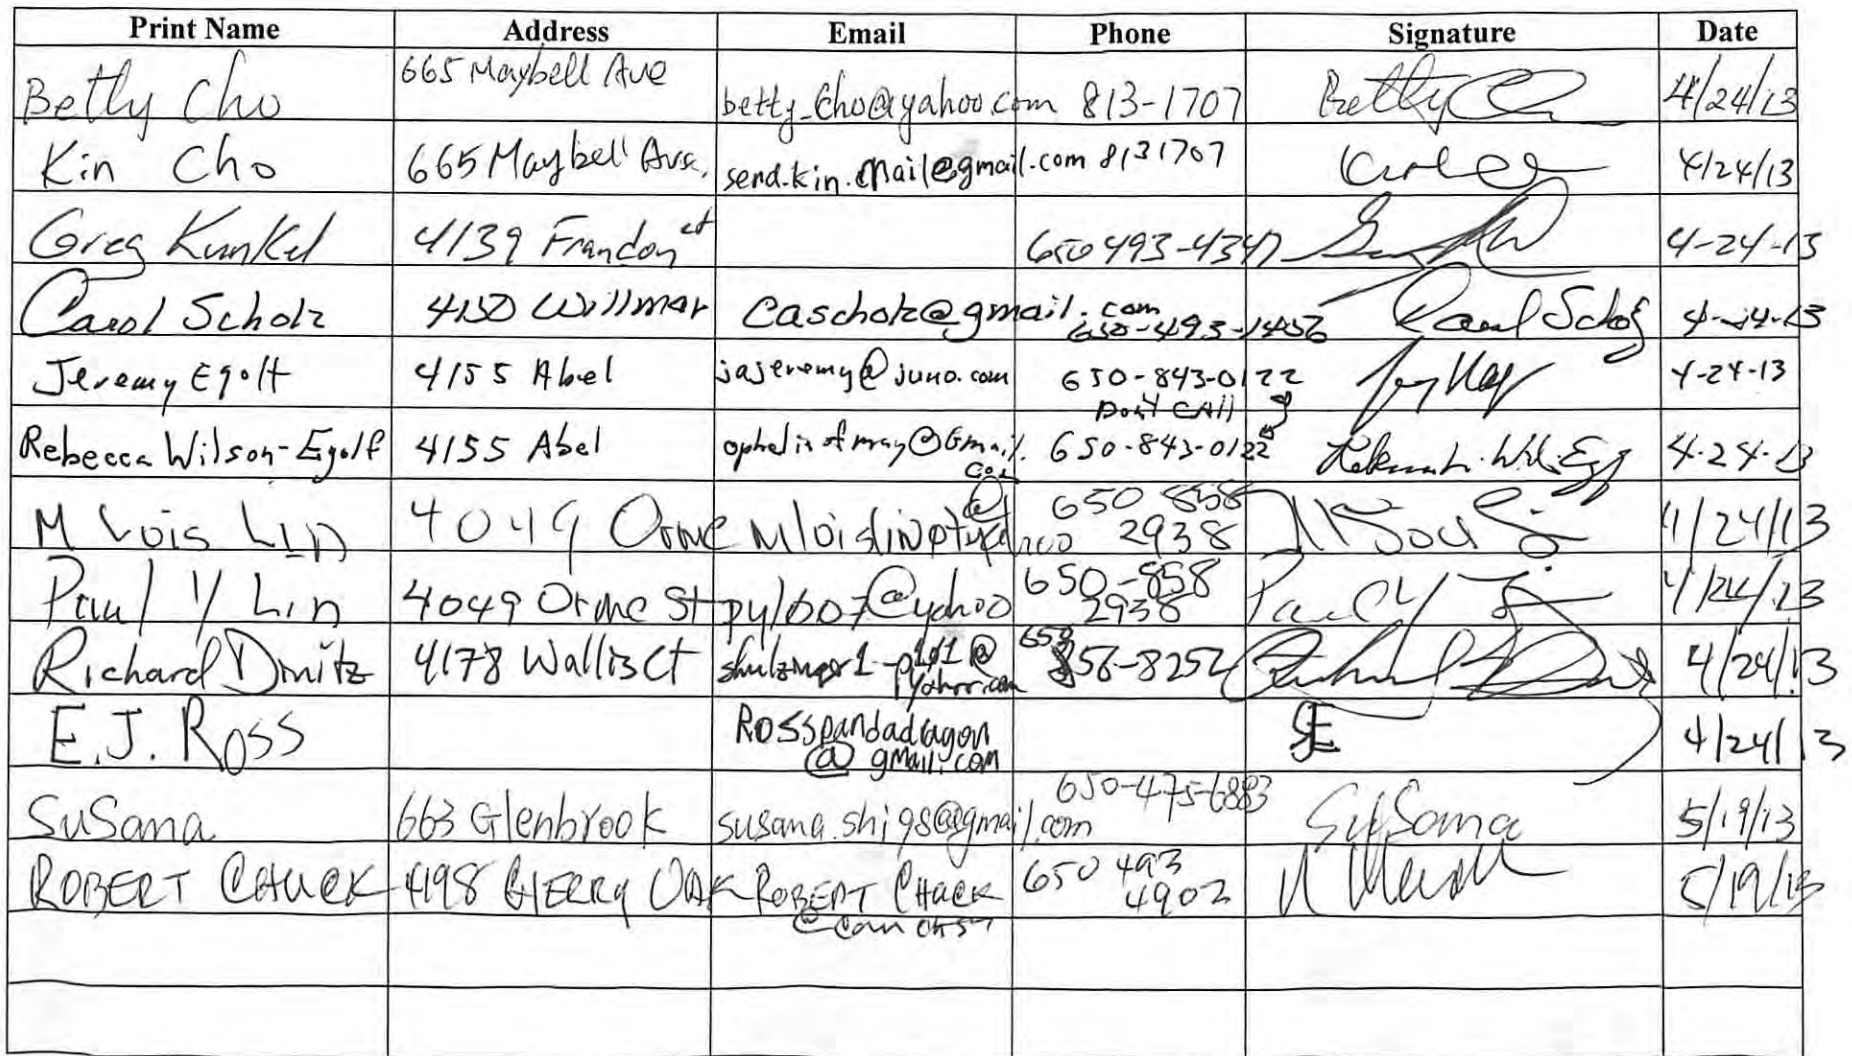 Print Name Address Email Phone Signature Date
Betty Cho 665 Maybell Ave betty_cho@yahoo.com 813-1707 Betty 4/24/13
Kin Cho 665 Maybell Ave. send.kin.mail@gmail.com 8131707 4/24/13
Greg Kunkel 4139 Frandon ct 650 493-4347 4-24-13
Carol Scholz 4150 Willmar cascholz@gmail.com 650-493-1456 Carol Scholz 4-24-13
Jeremy Egolf 4155 Abel jajeremy@juno.com 650-843-0122 4-24-13
Don't call
Rebecca Wilson-Egolf 4155 Abel opheliafmay@Gmail.com 650-843-0122 4-24-13
M Lois Lin 4049 Orme @ 650 858 2938 4/24/13
Paul Y Lin 4049 Orme St pylbo7@yahoo 650-858 2938 Paul Y 4/24/13
Richard Dmitz 4178 Wallis Ct yahoo.com 4/24/13
E.J. Ross Rosspandadragon@gmail.com 4/24/13
SuSana 663 Glenbrook susana.shi98@gmail.com 650-475-6883 SuSana 5/19/13
ROBERT CHUCK 4198 OAK ROBERT 650 493 4902 5/19/13